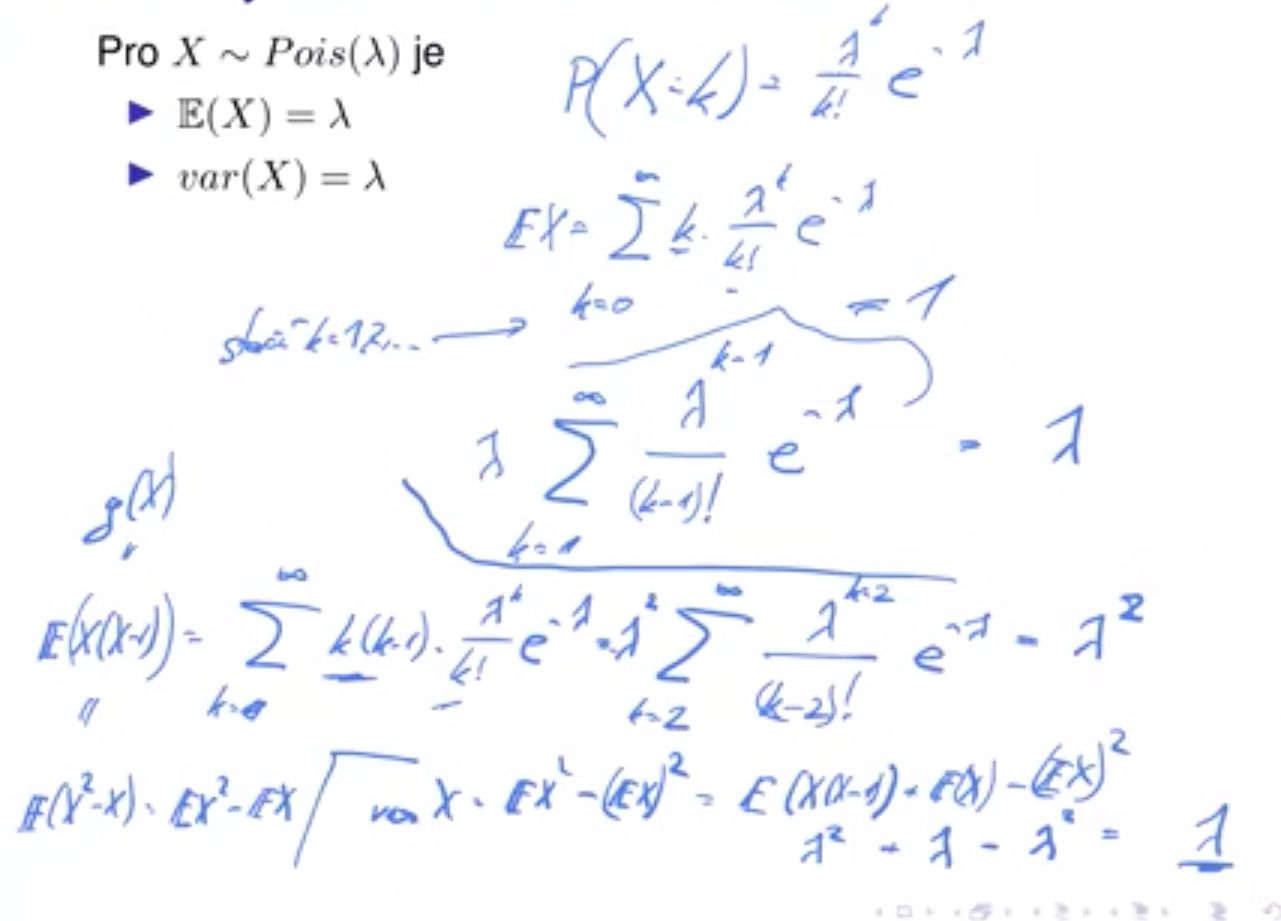 Pro X ∼ Pois(λ) je
▶ 𝔼(X) = λ
▶ var(X) = λ
P(X=k) = λ^k/k! e^{-λ}
EX = ∑_{k=0}^{∞} k · λ^k/k! e^{-λ}
stačí k=1,2,... ⟶
= 1
λ ∑_{k=1}^{∞} λ^{k-1}/(k-1)! e^{-λ} = λ
g(X)
E(X(X-1)) = ∑_{k=0}^{∞} k(k-1) · λ^k/k! e^{-λ} = λ^2 ∑_{k=2}^{∞} λ^{k-2}/(k-2)! e^{-λ} = λ^2
E(X^2-X) = EX^2 - EX
var X = EX^2 - (EX)^2 = E(X(X-1)) + E(X) - (EX)^2
λ^2 + λ - λ^2 = λ